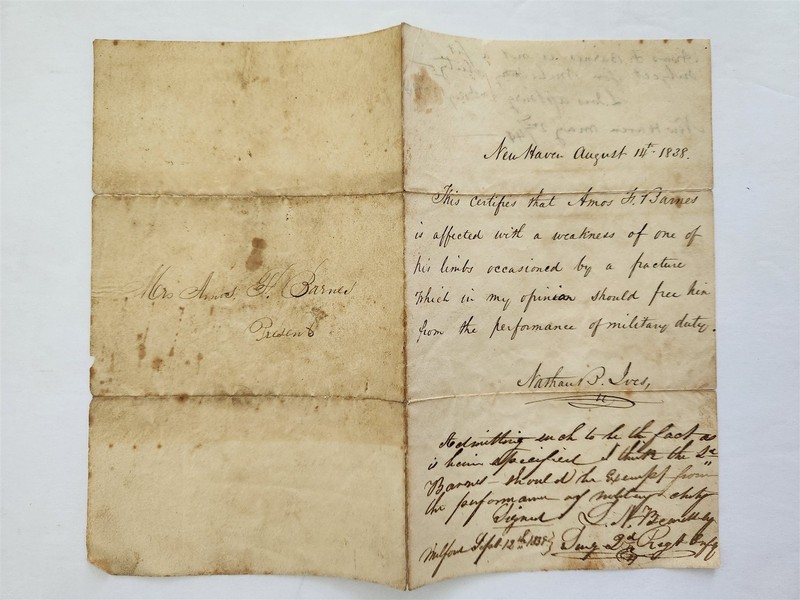 Mrs Amos, F. Barnes
Present
New Haven August 14th 1838.
This certifies that Amos F. Barnes
is affected with a weakness of one of
his limbs occasioned by a fracture
which in my opinion should free him
from the performance of military duty.
Nathan B. Ives,
Admitting such to be the fact as
is herin specified I think the Sd
Barnes should be Exempt from
the performance of military duty
Signed L. N. Beardsley
Milford Sept 12th 1838 Surg 2d Regt Infy
Amos F Barnes is not
subject for military duty
New Haven May